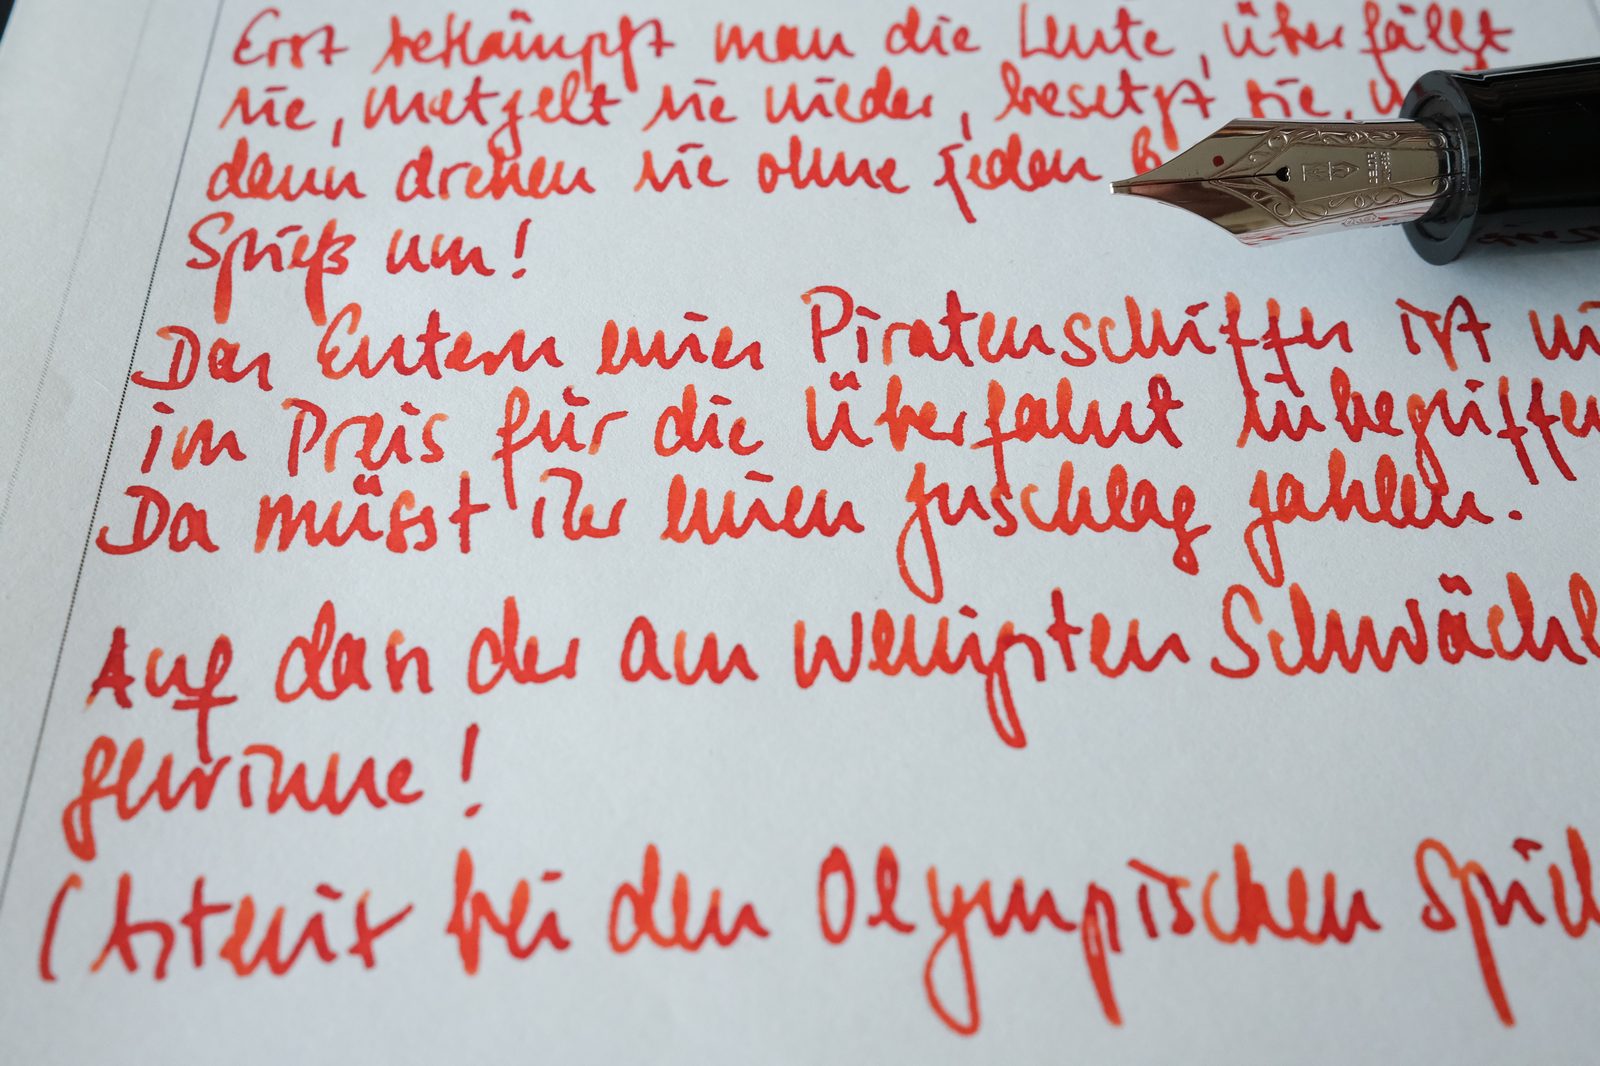 Erst bekämpft man die Leute, überfällt
sie, metzelt sie nieder, besetzt sie,
dann drehen sie ohne jeden
Spieß um!
Das Entern eines Piratenschiffes ist
im Preis für die Überfahrt inbegriffen
Da müsst ihr einen Zuschlag zahlen.
Auf das der am wenigsten
gewinne!
(Asterix bei den Olympischen